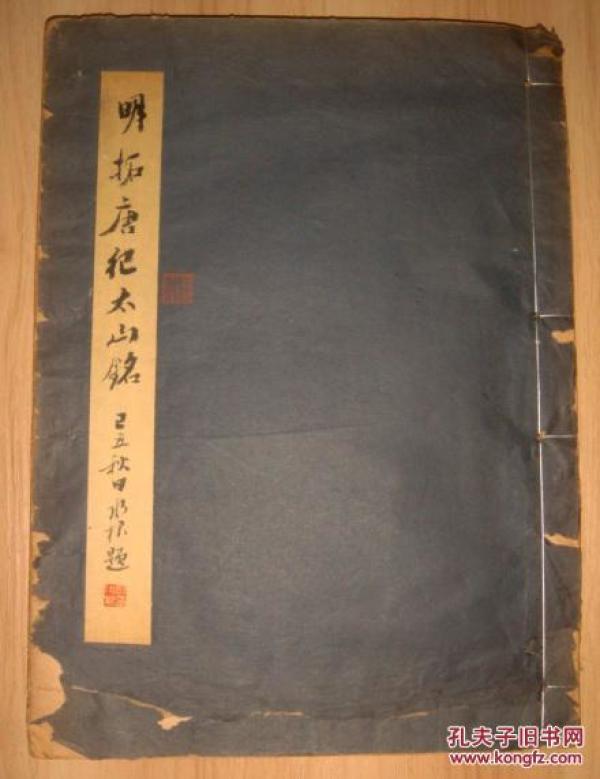 明拓唐纪太山铭
己丑秋日
题
孔夫子旧书网
www.kongfz.com